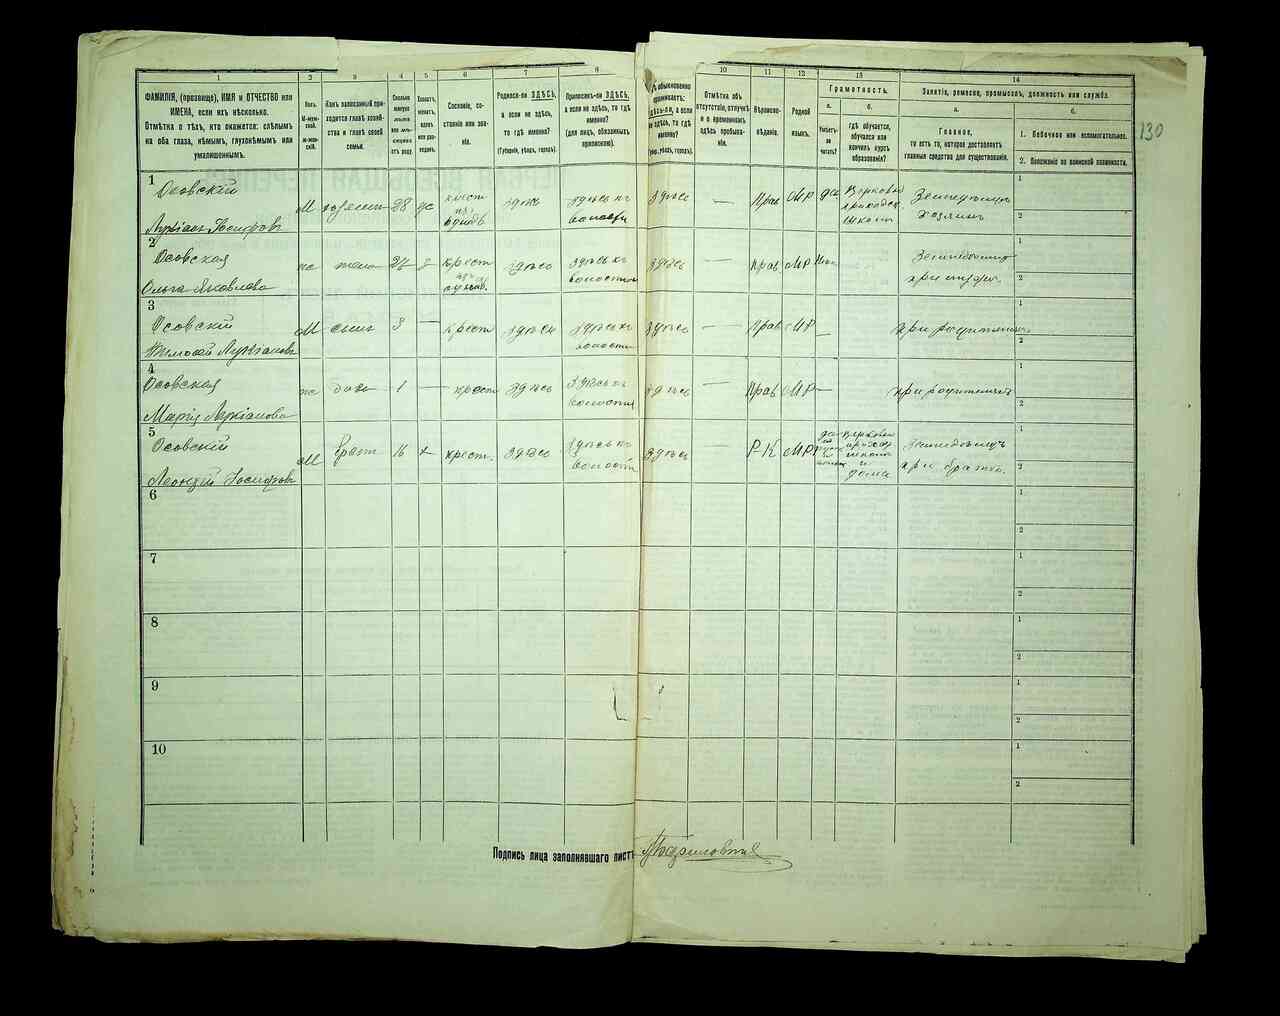 1
2
3
4
5
6
7
8
9
10
11
12
13
14
ФАМИЛІЯ, (прозвище), ИМЯ и ОТЧЕСТВО или
ИМЕНА, если ихъ нѣсколько.
Отмѣтка о тѣхъ, кто окажется: слѣпымъ
на оба глаза, нѣмымъ, глухонѣмымъ или
умалишеннымъ.
Полъ.
М-муж-
ской.
Ж-жен-
скій.
Какъ записанный при-
ходится главѣ хозяй-
ства и главѣ своей
семьи.
Сколько
минуло
лѣтъ
или мѣ-
сяцевъ
отъ роду.
Холостъ,
женатъ,
вдовъ
или раз-
веденъ.
Сословіе, со-
стояніе или зва-
ніе.
Родился-ли ЗДѢСЬ,
а если не здѣсь,
то гдѣ именно?
(Губернія, уѣздъ, городъ).
Приписанъ-ли ЗДѢСЬ,
а если не здѣсь, то гдѣ
именно?
(для лицъ, обязанныхъ
припискою).
обыкновенно
проживаетъ:
здѣсь-ли, а если
не здѣсь, то гдѣ
именно?
уѣздъ, городъ).
Отмѣтка объ
отсутствіи, отлучкѣ
и о временномъ
здѣсь пребыва-
ніи.
Вѣроиспо-
вѣданіе.
Родной
языкъ.
Грамотность.
а.
Умѣетъ-
ли
читать?
б.
гдѣ обучается,
обучался или
кончилъ курсъ
образованія?
Занятіе, ремесло, промыселъ, должность или служба.
а.
Главное,
то есть то, которое доставляетъ
главныя средства для существованія.
б.
1. Побочное или вспомогательное.
2. Положеніе по воинской повинности.
130
1
Осовскій
Лукіанъ Іосифовъ
М хозяинъ 28 крест здѣсь здѣсь къ волости здѣсь — Прав МР да Церковно приходск. школа хозяинъ
1
2
2
Осовская
Ольга Яковлева
жена 27 крест здѣсь здѣсь къ волости здѣсь — Прав МР при мужѣ
1
2
3
Осовскій
Тимофей Лукіановъ
М сынъ 3 — крест здѣсь здѣсь къ волости здѣсь — Прав МР — при родителяхъ
1
2
4
Осовская
Марія Лукіанова
дочь 1 — крест здѣсь здѣсь къ волости здѣсь — Прав МР — при родителяхъ
1
2
5
Осовскій
Леонтій Іосифовъ
М братъ 16 х крест. здѣсь здѣсь къ волости здѣсь Р-К МР да церковно приход школа и дома при братѣ.
1
2
6
1
2
7
1
2
8
1
2
9
1
2
10
1
2
Подпись лица заполнявшаго листъ